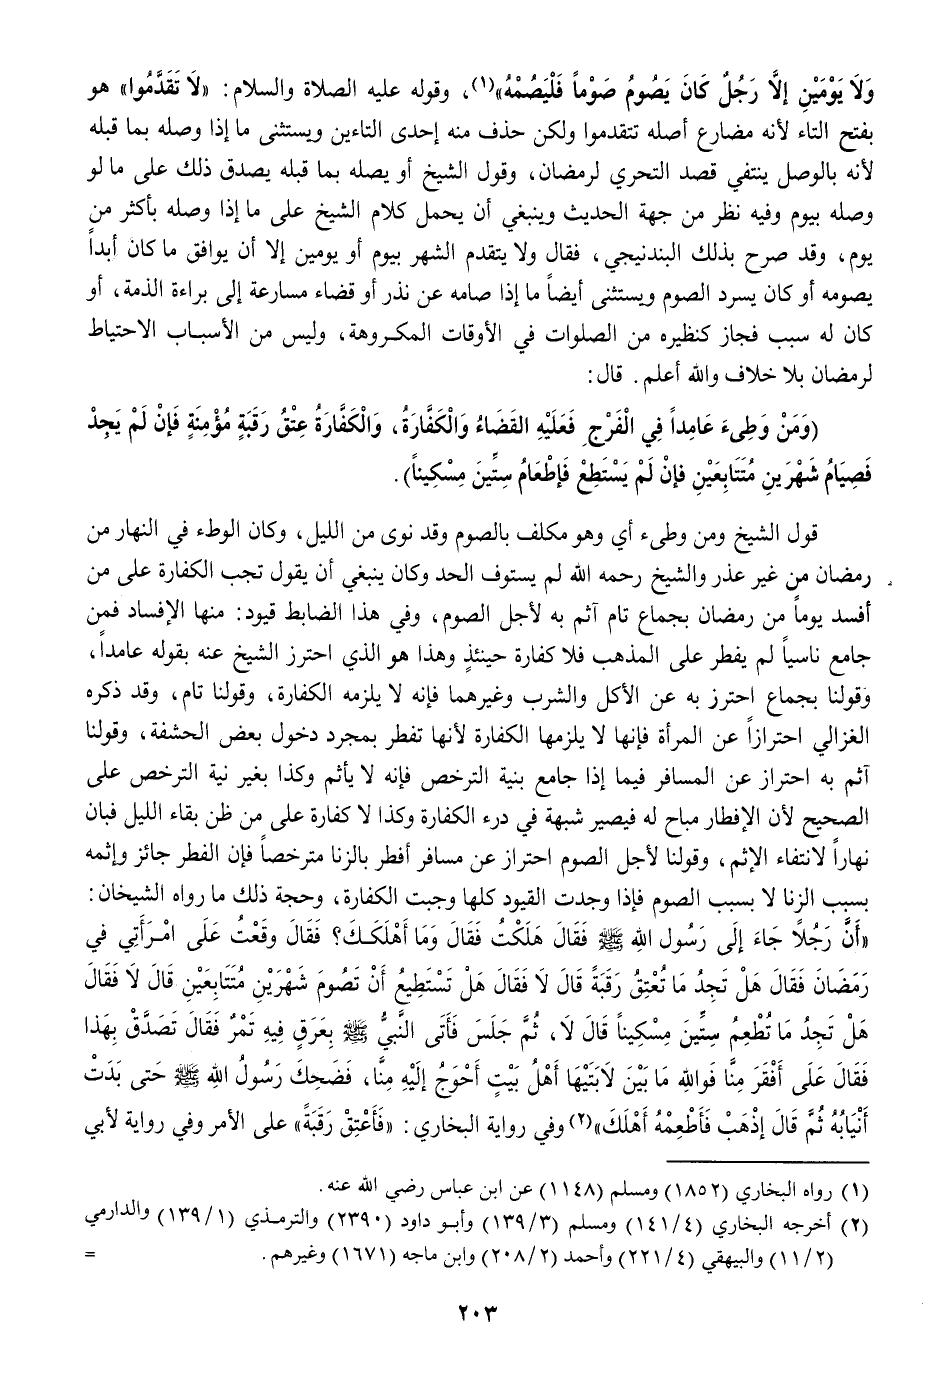 وَلَا يَوْمَيْنِ إلَّا رَجُلٌ كَانَ يَصُومُ صَوْماً فَلْيَصُمْهُ»(١)، وقوله عليه الصلاة والسلام: «لَا تَقَدَّمُوا» هو
بفتح التاء لأنه مضارع أصله تتقدموا ولكن حذف منه إحدى التاءين ويستثنى ما إذا وصله بما قبله
لأنه بالوصل ينتفي قصد التحري لرمضان، وقول الشيخ أو يصله بما قبله يصدق ذلك على ما لو
وصله بيوم وفيه نظر من جهة الحديث وينبغي أن يحمل كلام الشيخ على ما إذا وصله بأكثر من
يوم، وقد صرح بذلك البندنيجي، فقال ولا يتقدم الشهر بيوم أو يومين إلا أن يوافق ما كان أبداً
يصومه أو كان يسرد الصوم ويستثنى أيضاً ما إذا صامه عن نذر أو قضاء مسارعة إلى براءة الذمة، أو
كان له سبب فجاز كنظيره من الصلوات في الأوقات المكروهة، وليس من الأسباب الاحتياط
لرمضان بلا خلاف والله أعلم. قال:
(وَمَنْ وَطِىءَ عَامِداً فِي الْفَرْجِ فَعَلَيْهِ القَضَاءُ وَالْكَفَّارَةُ، وَالْكَفَّارَةُ عِتْقُ رَقَبَةٍ مُؤْمِنَةٍ فَإِنْ لَمْ يَجِدْ
فَصِيَامُ شَهْرَينِ مُتَتَابِعَيْنِ فإنْ لَمْ يَسْتَطِعْ فَإطْعَامُ سِتِّينَ مِسْكِيناً).
قول الشيخ ومن وطىء أي وهو مكلف بالصوم وقد نوى من الليل، وكان الوطء في النهار من
رمضان من غير عذر والشيخ رحمه الله لم يستوف الحد وكان ينبغي أن يقول تجب الكفارة على من
أفسد يوماً من رمضان بجماع تام آثم به لأجل الصوم، وفي هذا الضابط قيود: منها الإفساد فمن
جامع ناسياً لم يفطر على المذهب فلا كفارة حينئذٍ وهذا هو الذي احترز الشيخ عنه بقوله عامداً،
وقولنا بجماع احترز به عن الأكل والشرب وغيرهما فإنه لا يلزمه الكفارة، وقولنا تام، وقد ذكره
الغزالي احترازاً عن المرأة فإنها لا يلزمها الكفارة لأنها تفطر بمجرد دخول بعض الحشفة، وقولنا
آثم به احتراز عن المسافر فيما إذا جامع بنية الترخص فإنه لا يأثم وكذا بغير نية الترخص على
الصحيح لأن الإفطار مباح له فيصير شبهة في درء الكفارة وكذا لا كفارة على من ظن بقاء الليل فبان
نهاراً لانتفاء الإثم، وقولنا لأجل الصوم احتراز عن مسافر أفطر بالزنا مترخصاً فإن الفطر جائز وإثمه
بسبب الزنا لا بسبب الصوم فإذا وجدت القيود كلها وجبت الكفارة، وحجة ذلك ما رواه الشيخان:
«أَنَّ رَجُلاً جَاءَ إِلَى رَسُولِ اللهِ ﷺ فَقَالَ هَلَكْتُ فَقَالَ وَمَا أَهْلَكَكَ؟ فَقَالَ وقَعْتُ عَلَى امْرَأَتِي في
رَمَضَانَ فَقَالَ هَلْ تَجِدُ مَا تُعْتِقُ رَقَبَةً قَالَ لَا فَقَالَ هَلْ تَسْتَطِيعُ أَنْ تَصُومَ شَهْرَيْنِ مُتَتَابِعَيْنِ قَالَ لَا فَقَالَ
هَلْ تَجِدُ مَا تُطْعِمُ سِتِّينَ مِسْكِيناً قَالَ لَا، ثُمَّ جَلَسَ فَأَتَى النَّبِيُّ ﷺ بِعَرَقٍ فِيهِ تَمْرٌ فَقَالَ تَصَدَّقْ بِهَذَا
فَقَالَ عَلَى أَفْقَرَ مِنَّا فَواللهِ مَا بَيْنَ لَابَتَيْهَا أَهْلُ بَيْتٍ أَحْوَجُ إلَيْهِ مِنَّا، فَضَحِكَ رَسُولُ اللهِ ﷺ حَتى بَدَتْ
أَنْيَابُهُ ثُمَّ قَالَ إذْهَبْ فَأَطْعِمْهُ أَهْلَكَ»(٢) وفي رواية البخاري: «فَأَعْتِقْ رَقَبَةً» على الأمر وفي رواية لأبي
(١) رواه البخاري (١٨٥٢) ومسلم (١١٤٨) عن ابن عباس رضي الله عنه.
(٢) أخرجه البخاري (١٤١/٤) ومسلم (١٣٩/٣) وأبو داود (٢٣٩٠) والترمذي (١٣٩/١) والدارمي
(١١/٢) والبيهقي (٢٢١/٤) وأحمد (٢٠٨/٢) وابن ماجه (١٦٧١) وغيرهم. =
٢٠٣